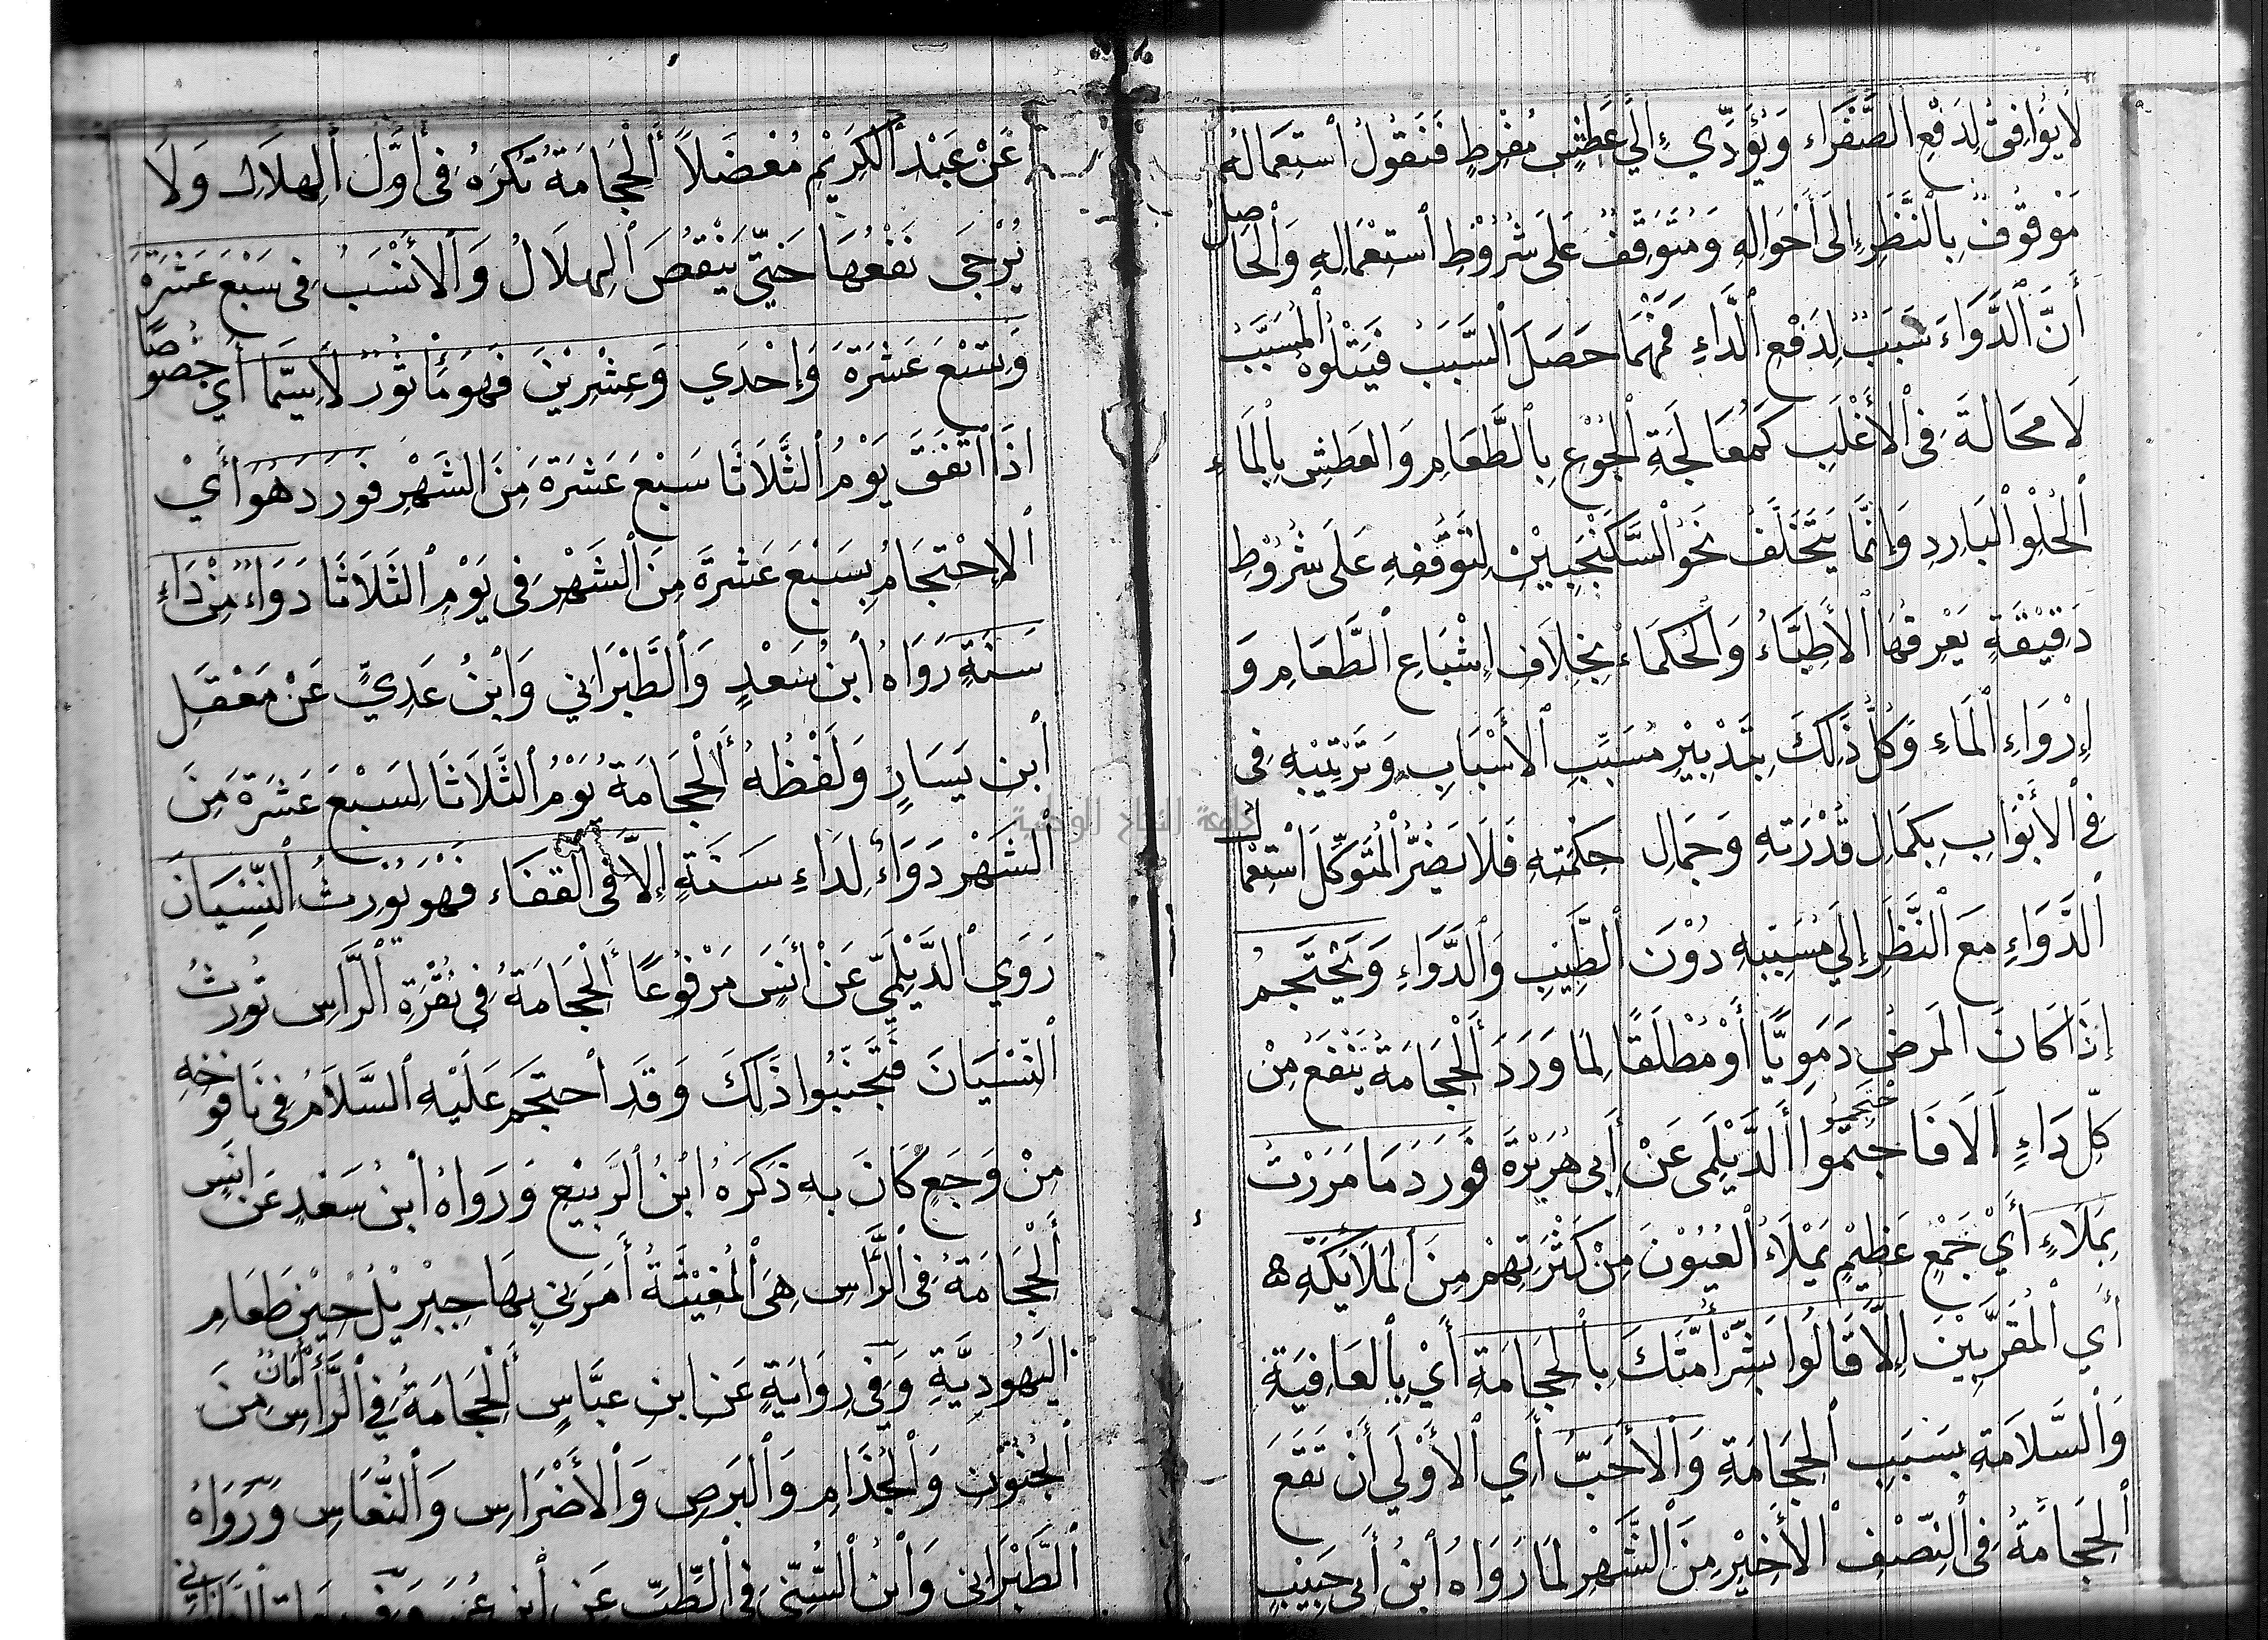 لَا يُوَافِقُ لِدَفْعِ الصَّفْرَاءِ وَيُؤَدِّي إِلَى عَطَشٍ مُفْرِطٍ فَنَقُولُ اسْتِعْمَالُهُ
مَوْقُوفٌ بِالنَّظَرِ إِلَى أَحْوَالِهِ وَمُتَوَقِّفٌ عَلَى شُرُوْطِ اسْتِعْمَالِهِ وَالْحَاصِلُ
أَنَّ الدَّوَاءَ سَبَبٌ لِدَفْعِ الدَّاءِ فَمَهْمَا حَصَلَ السَّبَبَ فَيَتْلُوهُ الْمُسَبَّبُ
لَا مَحَالَةَ فِي الْأَغْلَبِ كَمُعَالَجَةِ الْجُوْعِ بِالطَّعَامِ وَالْعَطَشِ بِالْمَاءِ
الْحُلْوِ الْبَارِدِ وَإِنَّمَا يَتَخَلَّفُ نَحْوُ السَّكَنْجَبِيْنِ لِتَوَقُّفِهِ عَلَى شُرُوْطٍ
دَقِيْقَةٍ يَعْرِفُهَا الْأَطِبَّاءُ وَالْحُكَمَاءُ بِخِلَافِ إِشْبَاعِ الطَّعَامِ وَ
إِرْوَاءِ الْمَاءِ وَكُلُّ ذَلِكَ بِتَدْبِيْرِ مُسَبِّبِ الْأَسْبَابِ وَتَرْتِيْبِهِ فِي
فِي الْأَبْوَابِ بِكَمَالِ قُدْرَتِهِ وَجَمَالِ حِكْمَتِهِ فَلَا يَضُرُّ الْمُتَوَكِّلَ اسْتِعْمَالُ
الدَّوَاءِ مَعَ النَّظَرِ إِلَى مُسَبِّبِهِ دُوْنَ الطَّبِيْبِ وَالدَّوَاءِ وَيَحْتَجِمُ
إِذَا كَانَ الْمَرَضُ دَمَوِيًّا أَوْ مُطْلَقًا لِمَا وَرَدَ أَلْحِجَامَةُ يَنْفَعُ مِنْ
كُلِّ دَاءٍ أَلَا فَاحْتَجِمُوا أَلدَّيْلَمِي عَنْ أَبِي هُرَيْرَةَ فَوَرَدَ مَا مَرَرْتُ
بِمَلَاءٍ أَيْ جَمْعٍ عَظِيْمٍ يَمْلَأُ الْعُيُوْنَ مِنْ كَثْرَتِهِمْ مِنَ الْمَلَائِكَةِ
أَيِ الْمُقَرَّبِيْنَ إِلَّا قَالُوا بَشِّرْ أُمَّتَكَ بِالْحِجَامَةِ أَيْ بِالْعَافِيَةِ
وَالسَّلَامَةِ بِسَبَبِ الْحِجَامَةِ وَالْأَحَبُّ أَيِ الْأَوْلَى أَنْ تَقَعَ
الْحِجَامَةُ فِي النِّصْفِ الْأَخِيْرِ مِنَ الشَّهْرِ لِمَا رَوَاهُ ابْنُ أَبِي حَبِيْبٍ
عَنْ عَبْدِ الْكَرِيْمِ مُعْضَلاً أَلْحِجَامَةُ تُكْرَهُ فِي أَوَّلِ الْهِلَالِ وَلَا
يُرْجَى نَفْعُهَا حَتَّى يَنْقُصَ الْهِلَالُ وَالْأَنْسَبُ فِي سَبْعَ عَشْرَةَ
وَتِسْعَ عَشْرَةَ وَإِحْدَي وَعِشْرِيْنَ فَهُوَ مَأْثُورٌ لَاسِيَّمَا أَيْ خُصُوصًا
إِذَا اتَّفَقَ يَوْمُ الثَّلَاثَا سَبْعَ عَشَرَةَ مِنَ الشَّهْرِ فَوَرَدَ هُوَ أَيْ
الْإِحْتِجَامُ بِسَبْعَ عَشْرَةَ مِنَ الشَّهْرِ فِي يَوْمِ الثَلَاثَا دَوَاءٌ مِنْ دَاءِ
سَنَةٍ رَوَاهُ ابْنُ سَعْدٍ وَالطَّبْرَانِي وَابْنُ عَدِيٍّ عَنْ مَعْقَلِ
ابْنِ يَسَارٍ وَلَفْظُهُ أَلْحِجَامَةُ يَوْمُ الثَّلَاثَا لِسَبْعَ عَشَرَةَ مِنَ
الشَهْرِ دَوَاءٌ لِدَاءِ سَنَةٍ إِلَّا فِي الْقَفَاءِ فَهُوَ يُوْرِثُ النِّسْيَانَ
رَوَي الدَّيْلَمِيُّ عَنْ أَنَسٍ مَرْفُوْعًا أَلْحِجَامَةُ فِي نُقْرَةِ الرَّأسِ تُورِثُ
النِّسْيَانَ فَتَجَنَّبُوا ذَلِكَ وَقَدِ احْتَجَمَ عَلَيْهِ السَّلَامُ فِي يَافُوخِهِ
مِنْ وَجَعٍ كَانَ بِهِ ذَكَرَهُ ابْنُ الرَّبِيْعِ وَرَوَاهُ ابْنُ سَعْدٍ عَنْ اَنَسٍ
أَلْحِجَامَةُ فِي الرَّأسِ هِيَ الْمُغِيْثَةُ أَمَرَنِي بِهَا جِبْرِيْلُ حِيْنَ طَعَامِ
الْيَهُودِيَّةِ وَفِي رِوَايَةٍ عَنِ ابْنِ عَبَّاسٍ أَلْحِجَامَةُ فِي الرَّأْسِ أَمَانٌ مِنَ
الْجُنُوْنِ وَالْجُذَامِ وَالْبَرَصِ وَالْأَضْرَاسِ وَالنُّعَاسِ وَرَوَاهُ
الطَّبْرَانِي وَابْنُ السُّنِّي فِي الطِّبِّ عَنِ ابْنِ عُمَرَ وَفِي